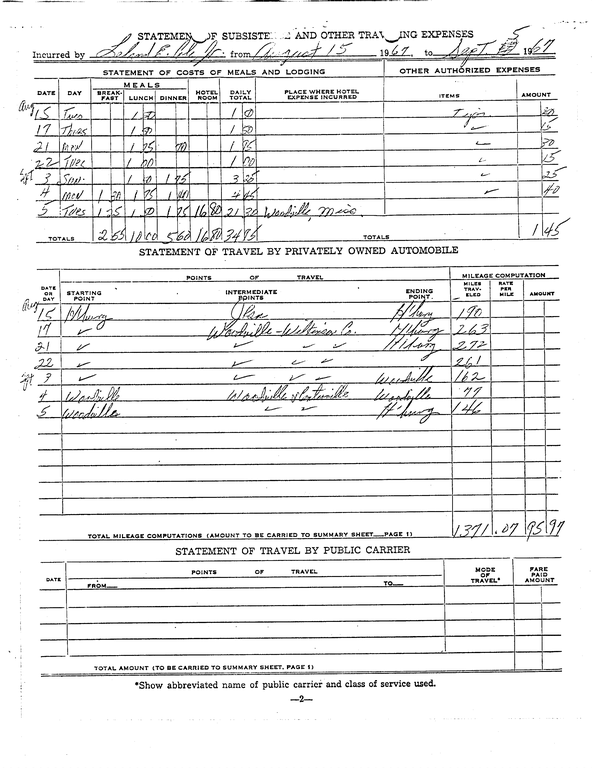 STATEMENT OF SUBSISTENCE AND OTHER TRAVELING EXPENSES
Incurred by Leland E. Cole Jr. from August 15 1967, to Sept 5 1967
STATEMENT OF COSTS OF MEALS AND LODGING OTHER AUTHORIZED EXPENSES
DATE DAY MEALS BREAK-FAST LUNCH DINNER HOTEL ROOM DAILY TOTAL PLACE WHERE HOTEL EXPENSE INCURRED ITEMS AMOUNT
Aug 15 Tues 1 50 1 50 Tips 20
17 Thurs 1 50 1 50 ✓ 15
21 Mon 1 75 1 75 ✓ 30
22 Tues 1 00 1 00 ✓ 15
Sept 3 Sun 1 50 1 75 3 25 ✓ 25
4 Mon 1 30 1 75 1 40 4 45 ✓ 40
5 Tues 1 25 1 50 1 75 16 80 21 30 Woodville, Miss
TOTALS 2 55 10 00 5 60 16 80 34 95 TOTALS 1 45
STATEMENT OF TRAVEL BY PRIVATELY OWNED AUTOMOBILE
DATE OR DAY POINTS OF TRAVEL MILEAGE COMPUTATION
STARTING POINT INTERMEDIATE POINTS ENDING POINT MILES TRAVELED RATE PER MILE AMOUNT
Aug 15 H'burg H'burg 190
17 ✓ Woodville - Wilkinson Co. H'burg 263
21 ✓ ✓ ✓ ✓ H'burg 272
22 ✓ ✓ ✓ ✓ 261
Sept 3 ✓ ✓ ✓ ✓ Woodville 162
4 Woodville Woodville & Centreville Woodville 77
5 Woodville ✓ ✓ H'burg 146
TOTAL MILEAGE COMPUTATIONS (AMOUNT TO BE CARRIED TO SUMMARY SHEET—PAGE 1) 1371 .07 95 97
STATEMENT OF TRAVEL BY PUBLIC CARRIER
DATE POINTS OF TRAVEL MODE OF TRAVEL* FARE PAID AMOUNT
FROM— TO—
TOTAL AMOUNT (TO BE CARRIED TO SUMMARY SHEET, PAGE 1)
*Show abbreviated name of public carrier and class of service used.
—2—